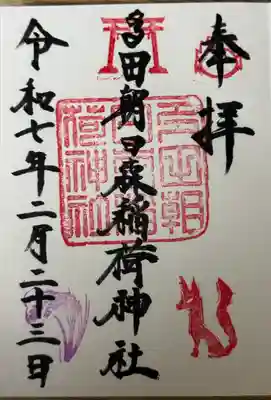 奉拝
多田朝日森稲荷神社
令和七年二月二十三日
多田朝
荷神社